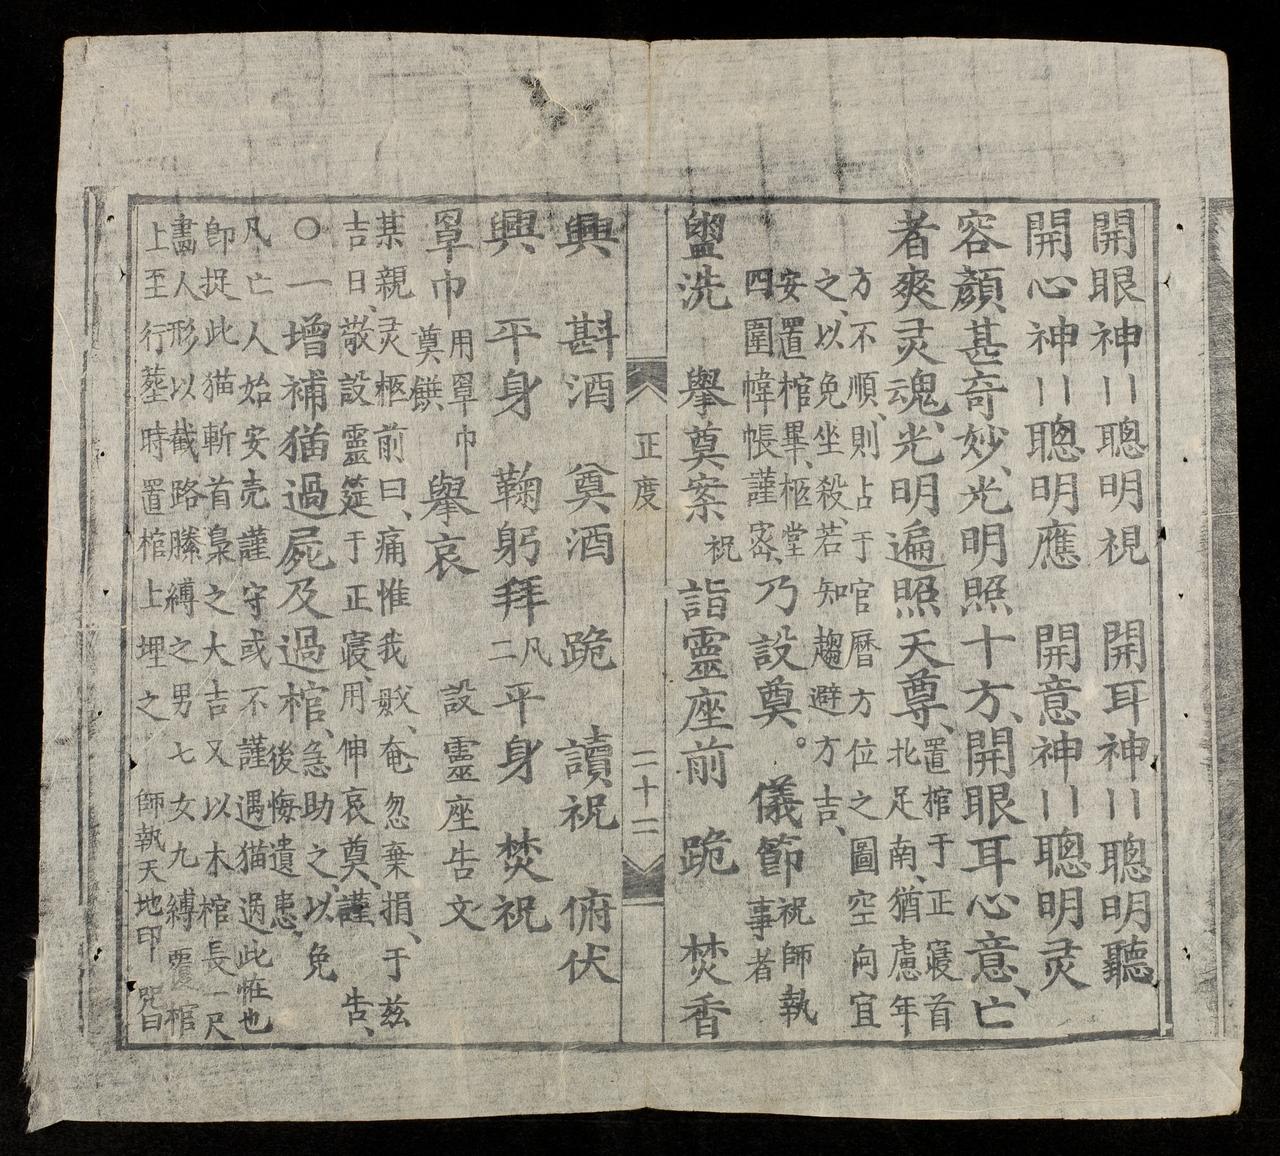 開眼神〢聰明視　開耳神〢聰明聽
開心神〢聰明應　開意神〢聰明灵
容顏甚奇妙、光明照十方、開眼耳心意、亡
者爽灵魂、光明遍照天尊、置棺于正寢首
北足南、猶慮年
方不順、則占于官曆方位之圖空向宜
之、以免坐殺、若知趨避方吉、
安置棺畢、柩堂
四圍幃帳謹密、乃設奠。儀節祝師執
事者
盥洗　舉奠案祝詣靈座前　跪　焚香
正度　二十二
興　斟酒　奠酒　跪　讀祝　俯伏
興　平身　鞠躬拜凡二平身　焚祝
罩巾用罩巾
奠饌舉哀　設靈座告文
某親灵柩前曰、痛惟我戝、奄忽棄捐、于茲
吉日、敬設靈筵于正寢、用伸哀奠、謹　告、
〇一增補猫過屍及過棺、急助之、以免
後悔遺患、
凡亡人始安壳謹守或不謹遇猫過此恠也
卽捉此猫斬首梟之大吉又以木棺長一尺
畵人形以截路縢縛之男七女九縛覆棺
上至行𦵏時置棺上埋之、師執天地印　咒曰